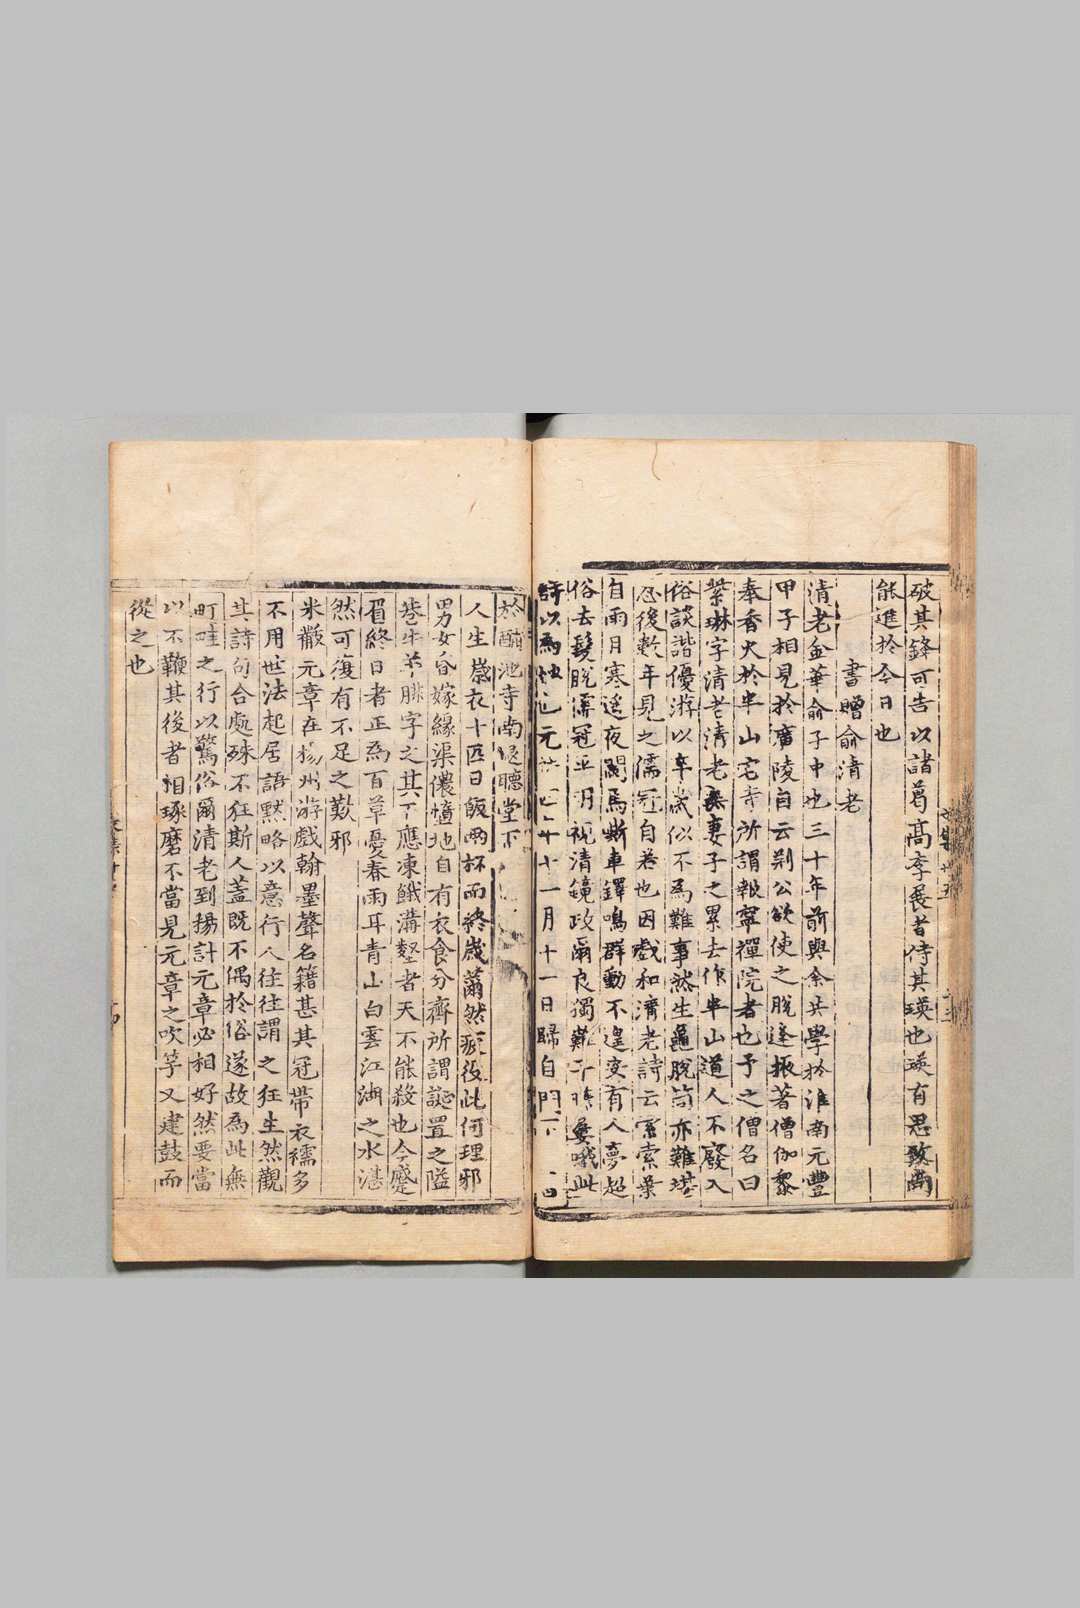 破其鋒可告以諸葛髙李長者侍其瑛也瑛有思致尚
能進於今日也
書贈俞清老
清老金華俞子中也三十年前與余共學於淮南元豐
甲子相見於廣陵自云荆公欲使之脫逢掖著僧伽黎
奉香火於半山宅寺所謂報寧禪院者也予之僧名曰
紫琳字清老清老無妻子之累去作半山道人不廢入
俗談諧優游以卒歲似不爲難事然生龜脫筒亦難堪
忍後數年見之儒冠自若也因戲和清老詩云索索葉
自雨月寒遥夜闌馬嘶車鐸鳴群動不遑安有人夢超
俗去髮脫儒冠平明視清鏡政爾良獨難子瞻屢哦此
詩以爲妙也元祐 年十一月十一日歸自門下
於酺池寺南退聽堂下
人生歲衣十匹日飯兩杯而終歲薾然疲役此何理邪
男女昏嫁縁渠儂墮地自有衣食分齊所謂誕置之隘
巷牛羊腓字之其不應凍餓溝壑者天不能殺也今蹙
眉終日者正爲百草憂春雨耳青山白雲江湖之水湛
然可復有不足之歎邪
米黻元章在揚州游戲翰墨聲名籍甚其冠帶衣襦多
不用世法起居語默略以意行人往往謂之狂生然觀
其詩句合處殊不狂斯人蓋既不偶於俗遂故爲此無
町畦之行以驚俗爾清老到揚計元章必相好然要當
以不鞭其後者相琢磨不當見元章之吹竽又建鼓而
從之也